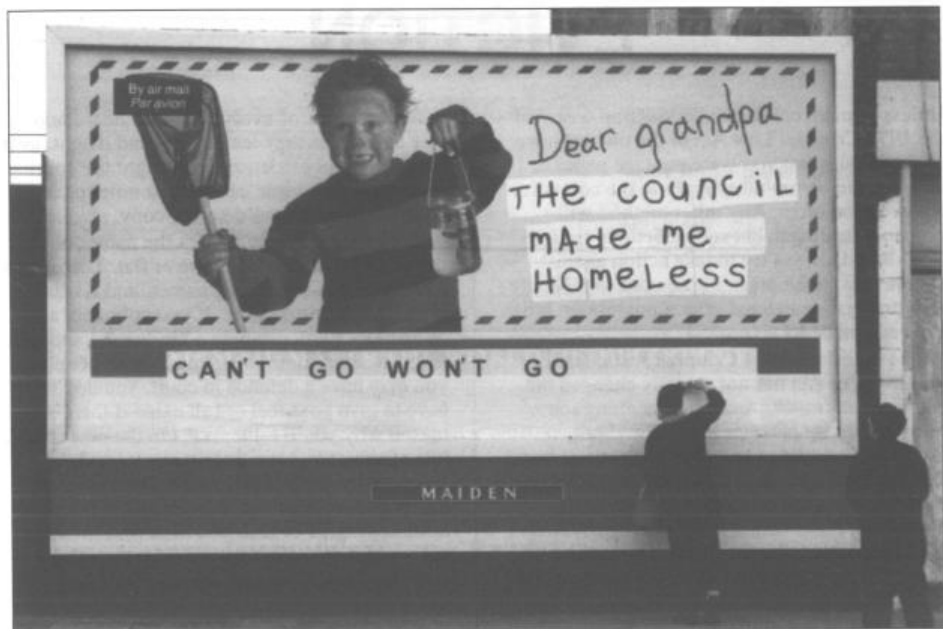 By air mail
Par avion
Dear grandpa
THe counciL
mAde me
HOmeLess
CAN'T GO WON'T GO
MAIDEN